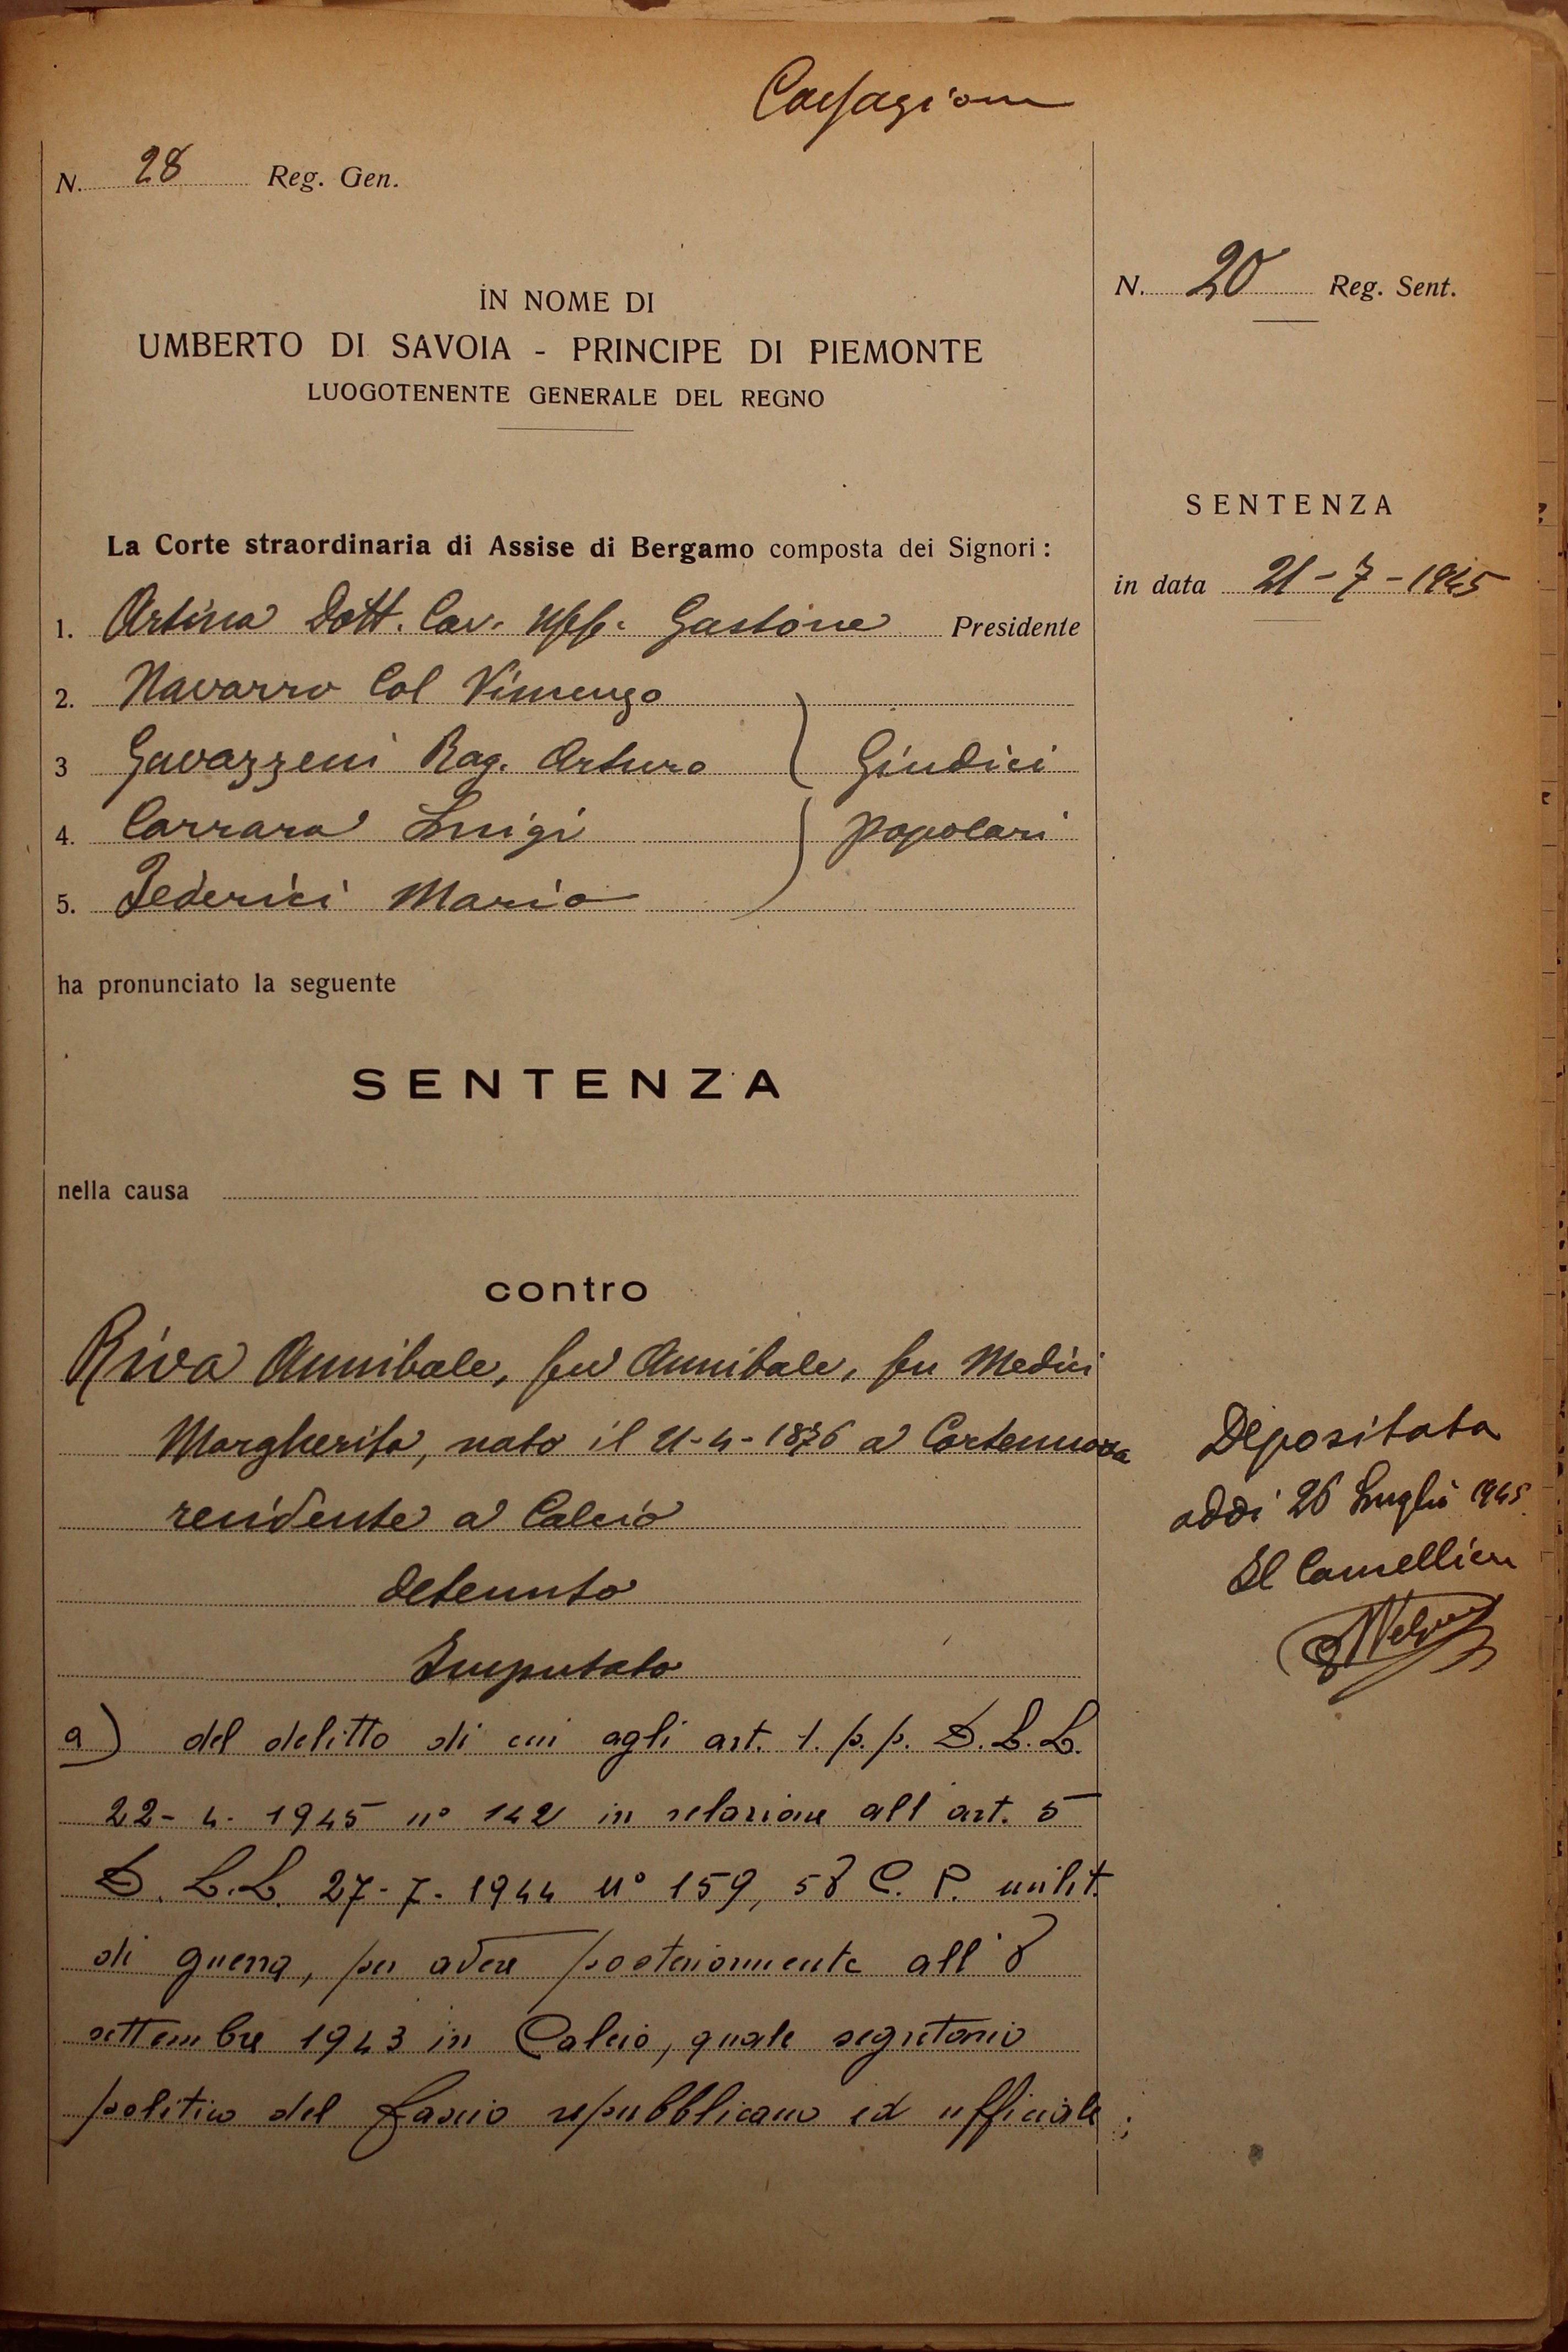 Cassazione
N. 28 Reg. Gen.
N. 20 Reg. Sent.
IN NOME DI
UMBERTO DI SAVOIA - PRINCIPE DI PIEMONTE
LUOGOTENENTE GENERALE DEL REGNO
SENTENZA
in data 21-7-1945
La Corte straordinaria di Assise di Bergamo composta dei Signori:
1. Artina Dott. Cav. Uff. Gastone Presidente
2. Navarro Col Vincenzo
3 Gavazzeni Rag. Arturo Giudici
4. Carrara Luigi popolari
5. Federici Mario
ha pronunciato la seguente
SENTENZA
nella causa
contro
Riva Annibale, fu Annibale, fu Medici
Margherita, nato il 21-4-1876 a Cortenuova
residente a Calcio
detenuto
Imputato
a) del delitto di cui agli art. 1. p. p. D. L. L.
22-4-1945 n° 142 in relazione all art. 5
D. L. L. 27-7-1944 n° 159, 58 C. P. milit.
di guerra, per avere posteriormente all'8
settembre 1943 in Calcio, quale segretario
politico del fascio repubblicano ed ufficiale
Depositata
addì 26 Luglio 1945
Il Cancelliere